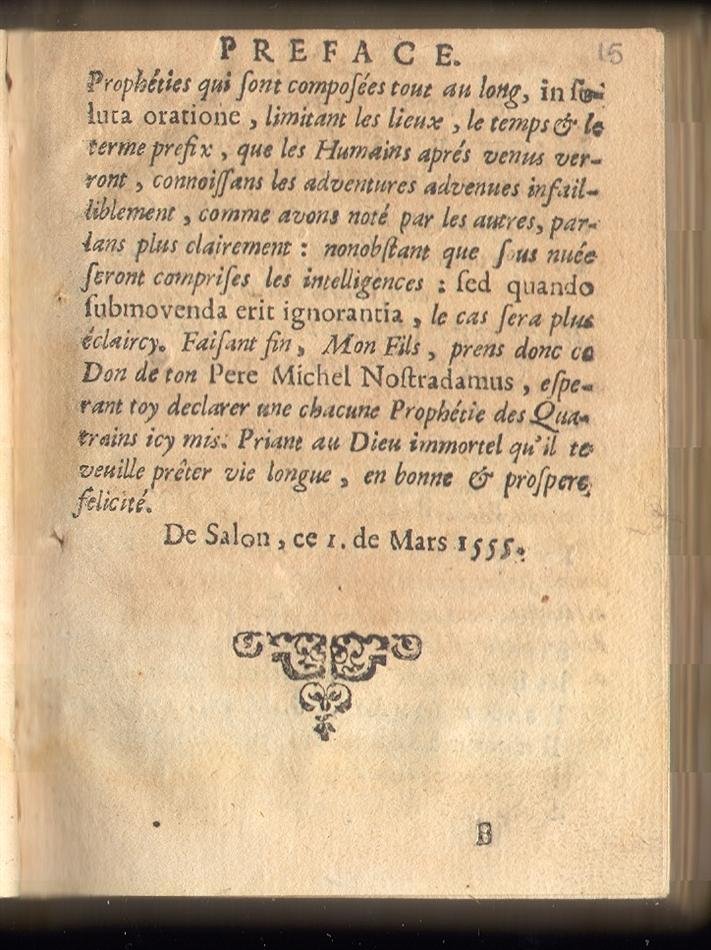 PREFACE. 15
Prophéties qui ſont compoſées tout au long, in ſo-
luta oratione, limitant les lieux, le temps & le
terme prefix, que les Humains aprés venus ver-
ront, connoiſſans les adventures advenues infail-
liblement, comme avons noté par les autres, par-
lans plus clairement : nonobſtant que ſous nuée
ſeront compriſes les intelligences : ſed quando
ſubmovenda erit ignorantia, le cas ſera plus
éclaircy. Faiſant fin, Mon Fils, prens donc ce
Don de ton Pere Michel Noſtradamus, eſpe-
rant toy declarer une chacune Prophétie des Qua-
trains icy mis. Priant au Dieu immortel qu'il te
veuille prêter vie longue, en bonne & proſpere
felicité.
De Salon, ce 1. de Mars 1555.
B